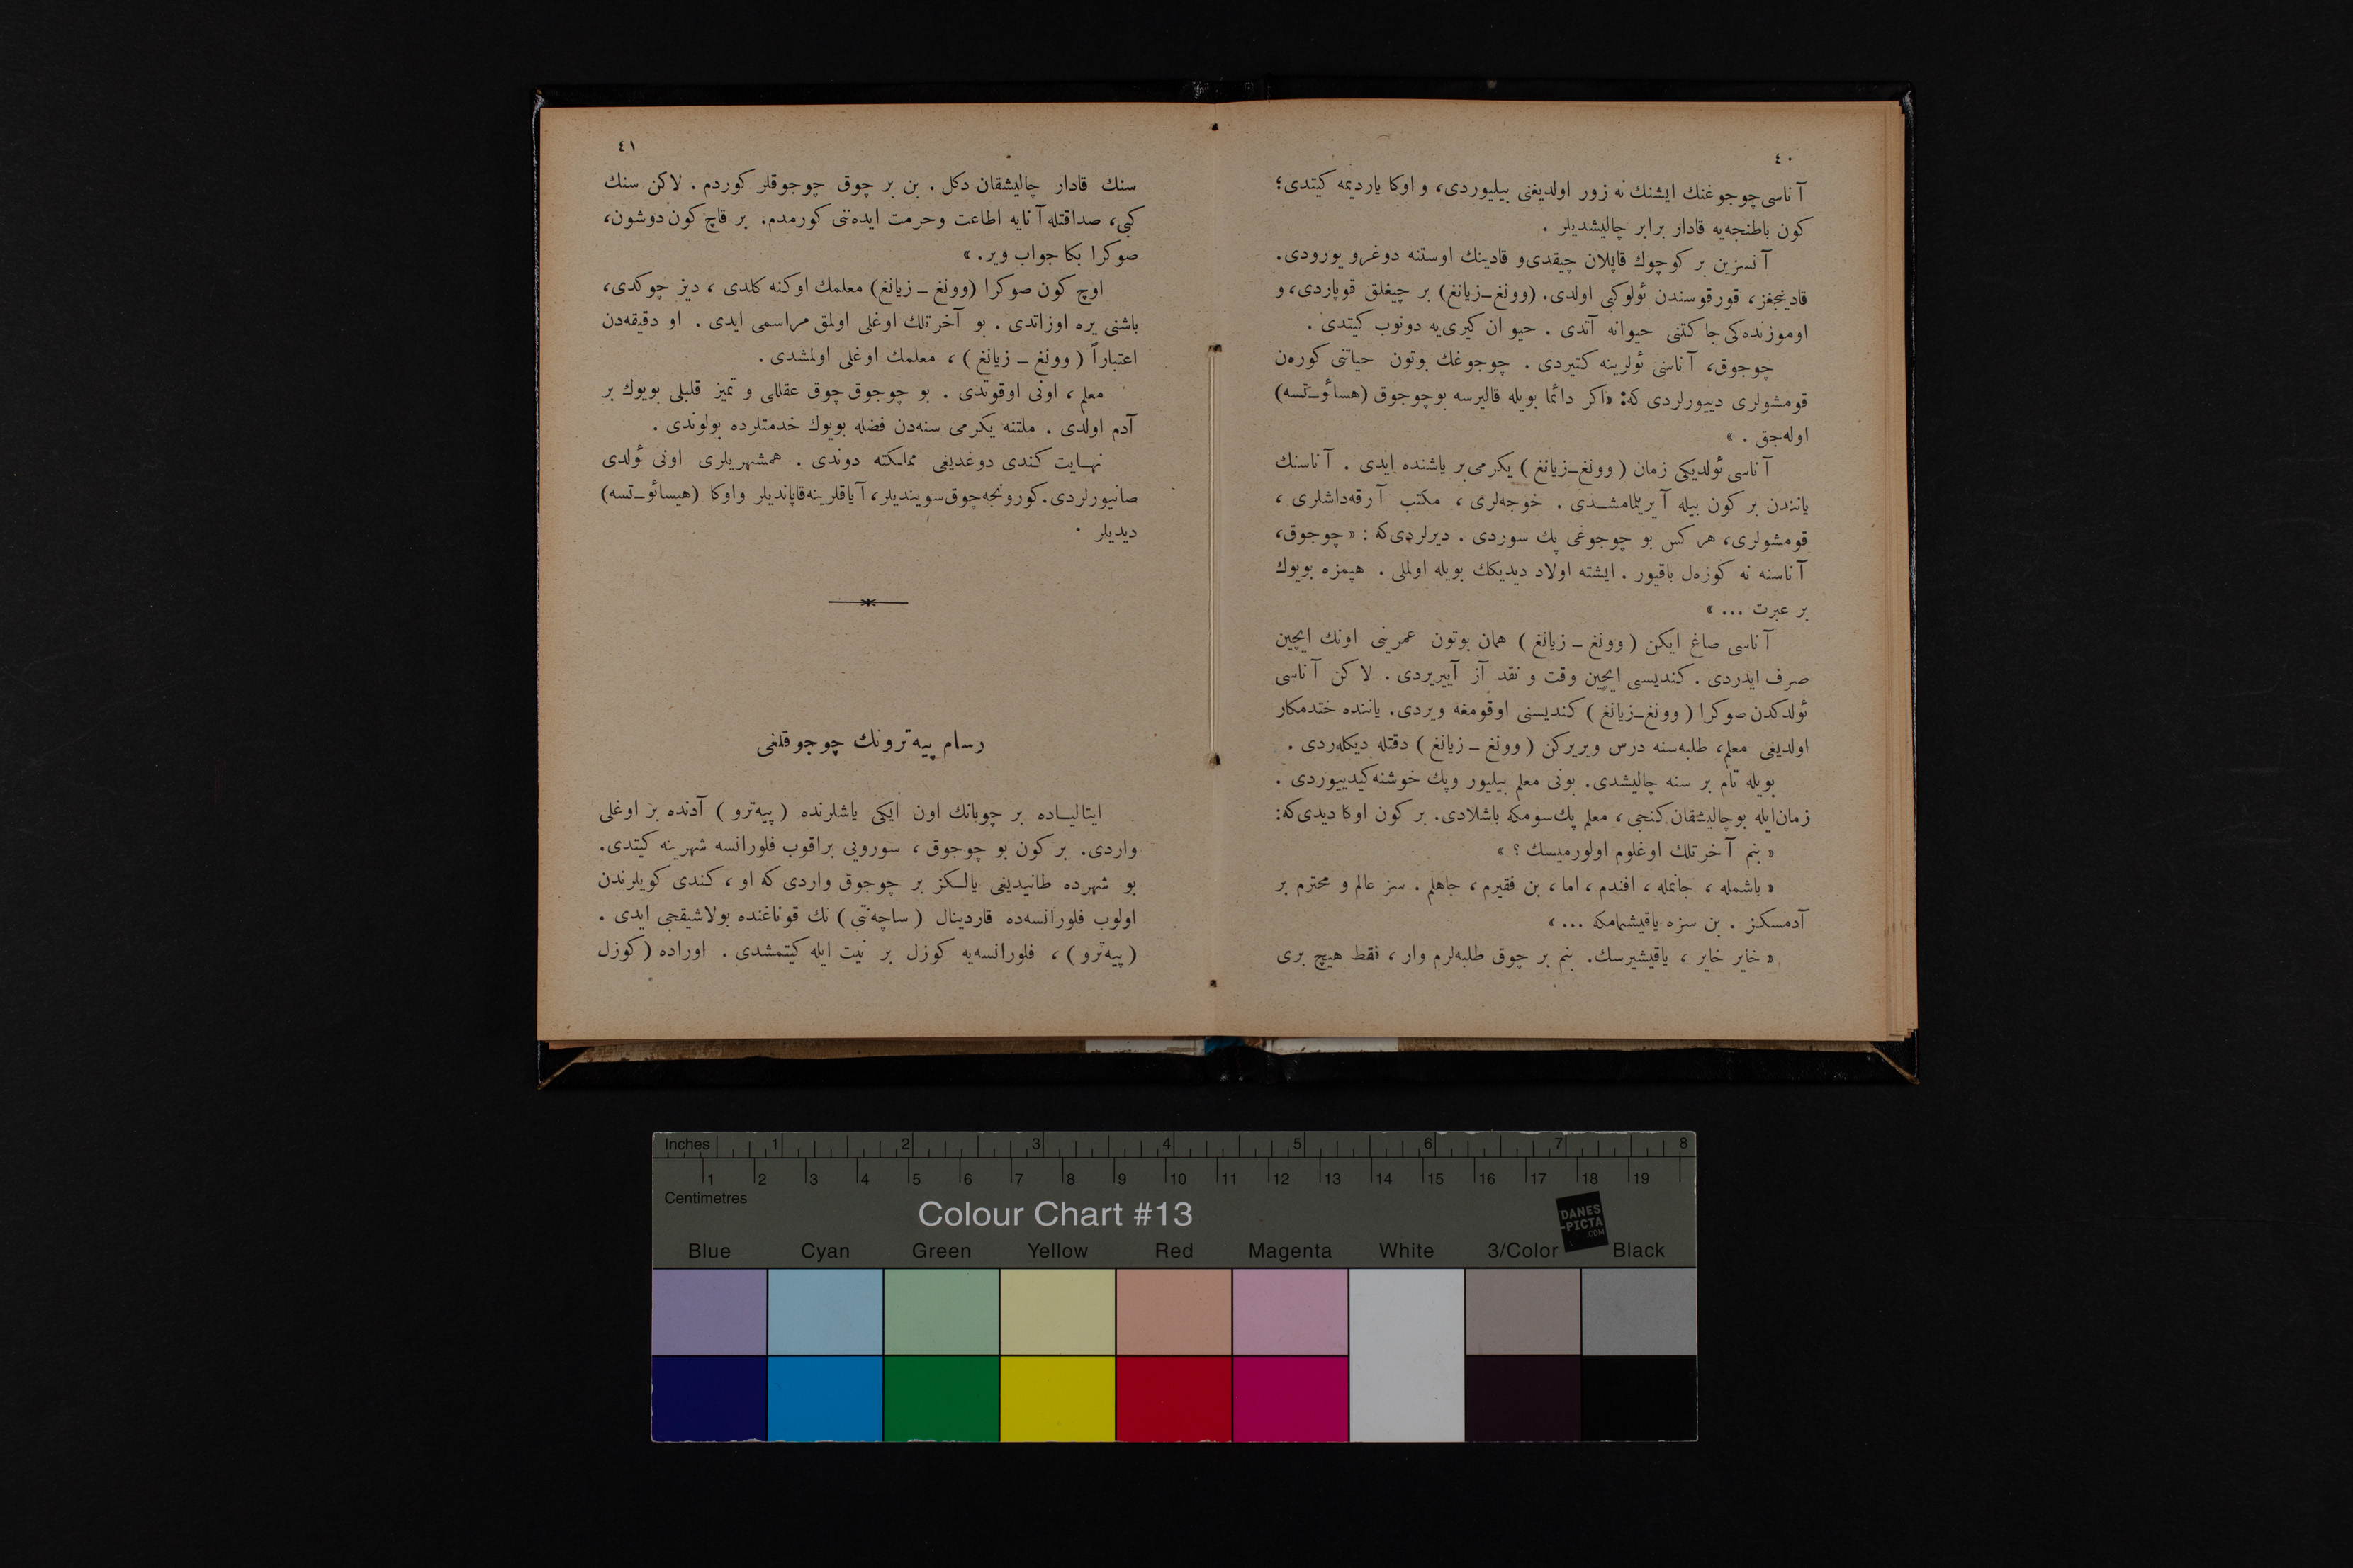 ٤٠
آناسی چوجوغنك ایشنك نه زور اولدیغنی بیلیوردی، و اوكا یاردیمه كیتدی؛
كون باطنجه‌یه قادار برابر چالیشدیلر .
آنسزین بر كوچوك قاپلان چیقدی‌و قادینك اوستنه دوغرو یورودی.
قادینجغز، قورقوسندن ئولو‌كبی اولدی. (وونغ-زیانغ) بر چیغلق قوپاردی، و
اوموزنده‌كی جاكتنی حیوانه آتدی . حیوان كیری‌یه دونوب كیتدی .
چوجوق، آناسنی ئولرینه كتیردی . چوجوغك بوتون حیاتنی كوره‌ن
قومشولری دییورلردی كه: «اكر دائما بویله قالیرسه بوچوجوق (هسائو-تسه)
اوله‌جق . »
آناسی ئولدیكی زمان (وونغ-زیانغ) یكرمی‌بر یاشنده ایدی . آناسنك
یانندن بر كون بیله آیریلمامشـدی . خوجه‌لری ، مكتب آرقه‌داشلری ،
قومشولری، هر كس بو چوجوغی پك سوردی . دیرلردی‌كه : « چوجوق،
آناسنه نه كوزه‌ل باقیور . ایشته اولاد دیدیكك بویله اولملی . هپمزه بویوك
بر عبرت ... »
آناسی صاغ ایكن ( وونغ - زیانغ ) همان بوتون عمرینی اونك ایچین
صرف ایدردی . كندیسی ایچین وقت و نقد آز آییریردی . لاكن آناسی
ئولدكدن صوكرا ( وونغ-زیانغ ) كندیسنی اوقومغه ویردی. یاننده ختدمكار
اولدیغی معلم، طلبه‌سنه درس ویریركن ( وونغ - زیانغ ) دقتله دیكله‌ردی .
بویله تام بر سنه چالیشدی. بونی معلم بیلیور وپك خوشنه كیدییوردی .
زمان‌ایله بوچالیشقان كنجی ، معلم پك‌سومكه باشلادی. بر كون اوكا دیدی‌كه:
« بنم آخرتلك اوغلوم اولورمیسك ؟ »
« باشمله ، جانمله ، افندم ، اما ، بن فقیرم ، جاهلم . سز عالم و محترم بر
آدمسكز . بن سزه یاقیشمامكه ... »
« خایر خایر ، یاقیشیرسك. بنم بر چوق طلبه‌لرم وار ، فقط هیچ بری
٤١
سنك قادار چالیشقان دكل . بن بر چوق چوجوقلر كوردم . لاكن سنك
كبی، صداقتله آنایه اطاعت وحرمت ایده‌ننی كورمدم. بر قاچ كون دوشون،
صوكرا بكا جواب ویر. »
اوچ كون صوكرا (وونغ - زیانغ) معلمك اوكنه كلدی ، دیز چوكدی،
باشنی یره اوزاتدی . بو آخرتلك اوغلی اولمق مراسمی ایدی . او دقیقه‌دن
اعتباراً ( وونغ - زیانغ ) ، معلمك اوغلی اولمشدی .
معلم ، اونی اوقوتدی . بو چوجوق چوق عقللی و تمیز قلبلی بویوك بر
آدم اولدی . ملتنه یكرمی سنه‌دن فضله بویوك خدمتلرده بولوندی .
نهـایت كندی دوغدیغی مملكته دوندی . همشهریلری اونی ئولدی
صانیورلردی. كورونجه چوق سویندیلر، آیاقلرینه قاپاندیلر واوكا (هیسائو-تسه)
دیدیلر .
رسام پیه‌ترونك چوجوقلغی
ایتالیـاده بر چوبانك اون ایكی یاشلرنده ( پیه‌ترو ) آدنده بر اوغلی
واردی. بر كون بو چوجوق ، سورویی براقوب فلورانسه شهرینه كیتدی.
بو شهرده طانیدیغی یالـكز بر چوجوق واردی كه او ، كندی كویلرندن
اولوب فلورانسه‌ده قاردینال ( ساچه‌تتی ) نك قوناغنده بولاشیقجی ایدی .
(پیه‌ترو) ، فلورانسه‌یه كوزل بر نیت ایله كیتمشدی . اوراده (كوزل
Inches 1 2 3 4 5 6 7 8
1 2 3 4 5 6 7 8 9 10 11 12 13 14 15 16 17 18 19
Centimetres
Colour Chart #13
DANES
-PICTA
.COM
Blue Cyan Green Yellow Red Magenta White 3/Color Black